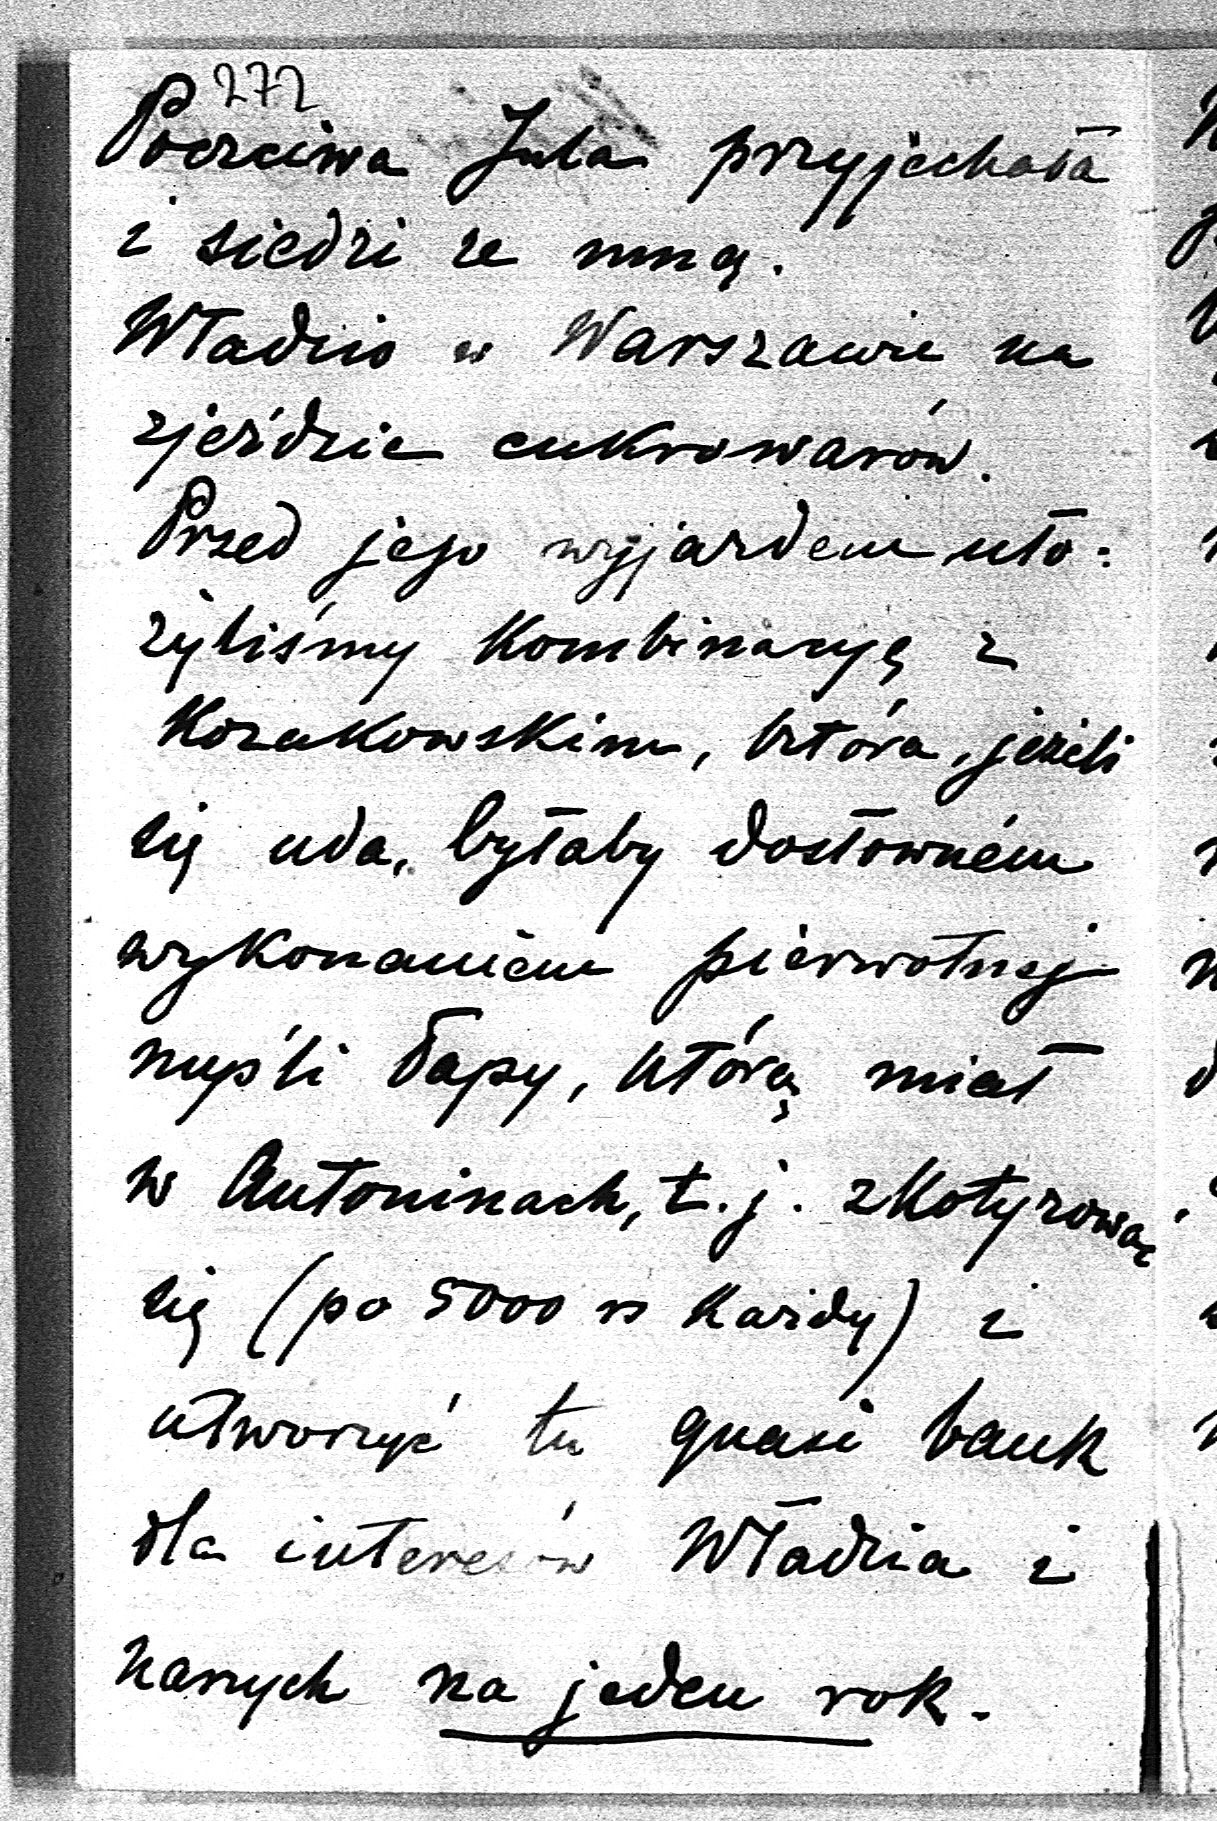 272
Poczciwa Jula przyjechała
i siedzi ze mną.
Władzio w Warszawie na
zjeździe cukrowarów.
Przed jego wyjazdem uło:
żyliśmy kombinacyę z
Kozakowskim, która, jeżeli
się uda, byłaby dosłowném
wykonaniem pierwotnej
myśli Papy, którą miał
w Antoninach, t.j. zkotyzować
się (po 5000 rs każdy) i
utworzyć tu quasi bank
dla interesów Władzia i
naszych na jeden rok.